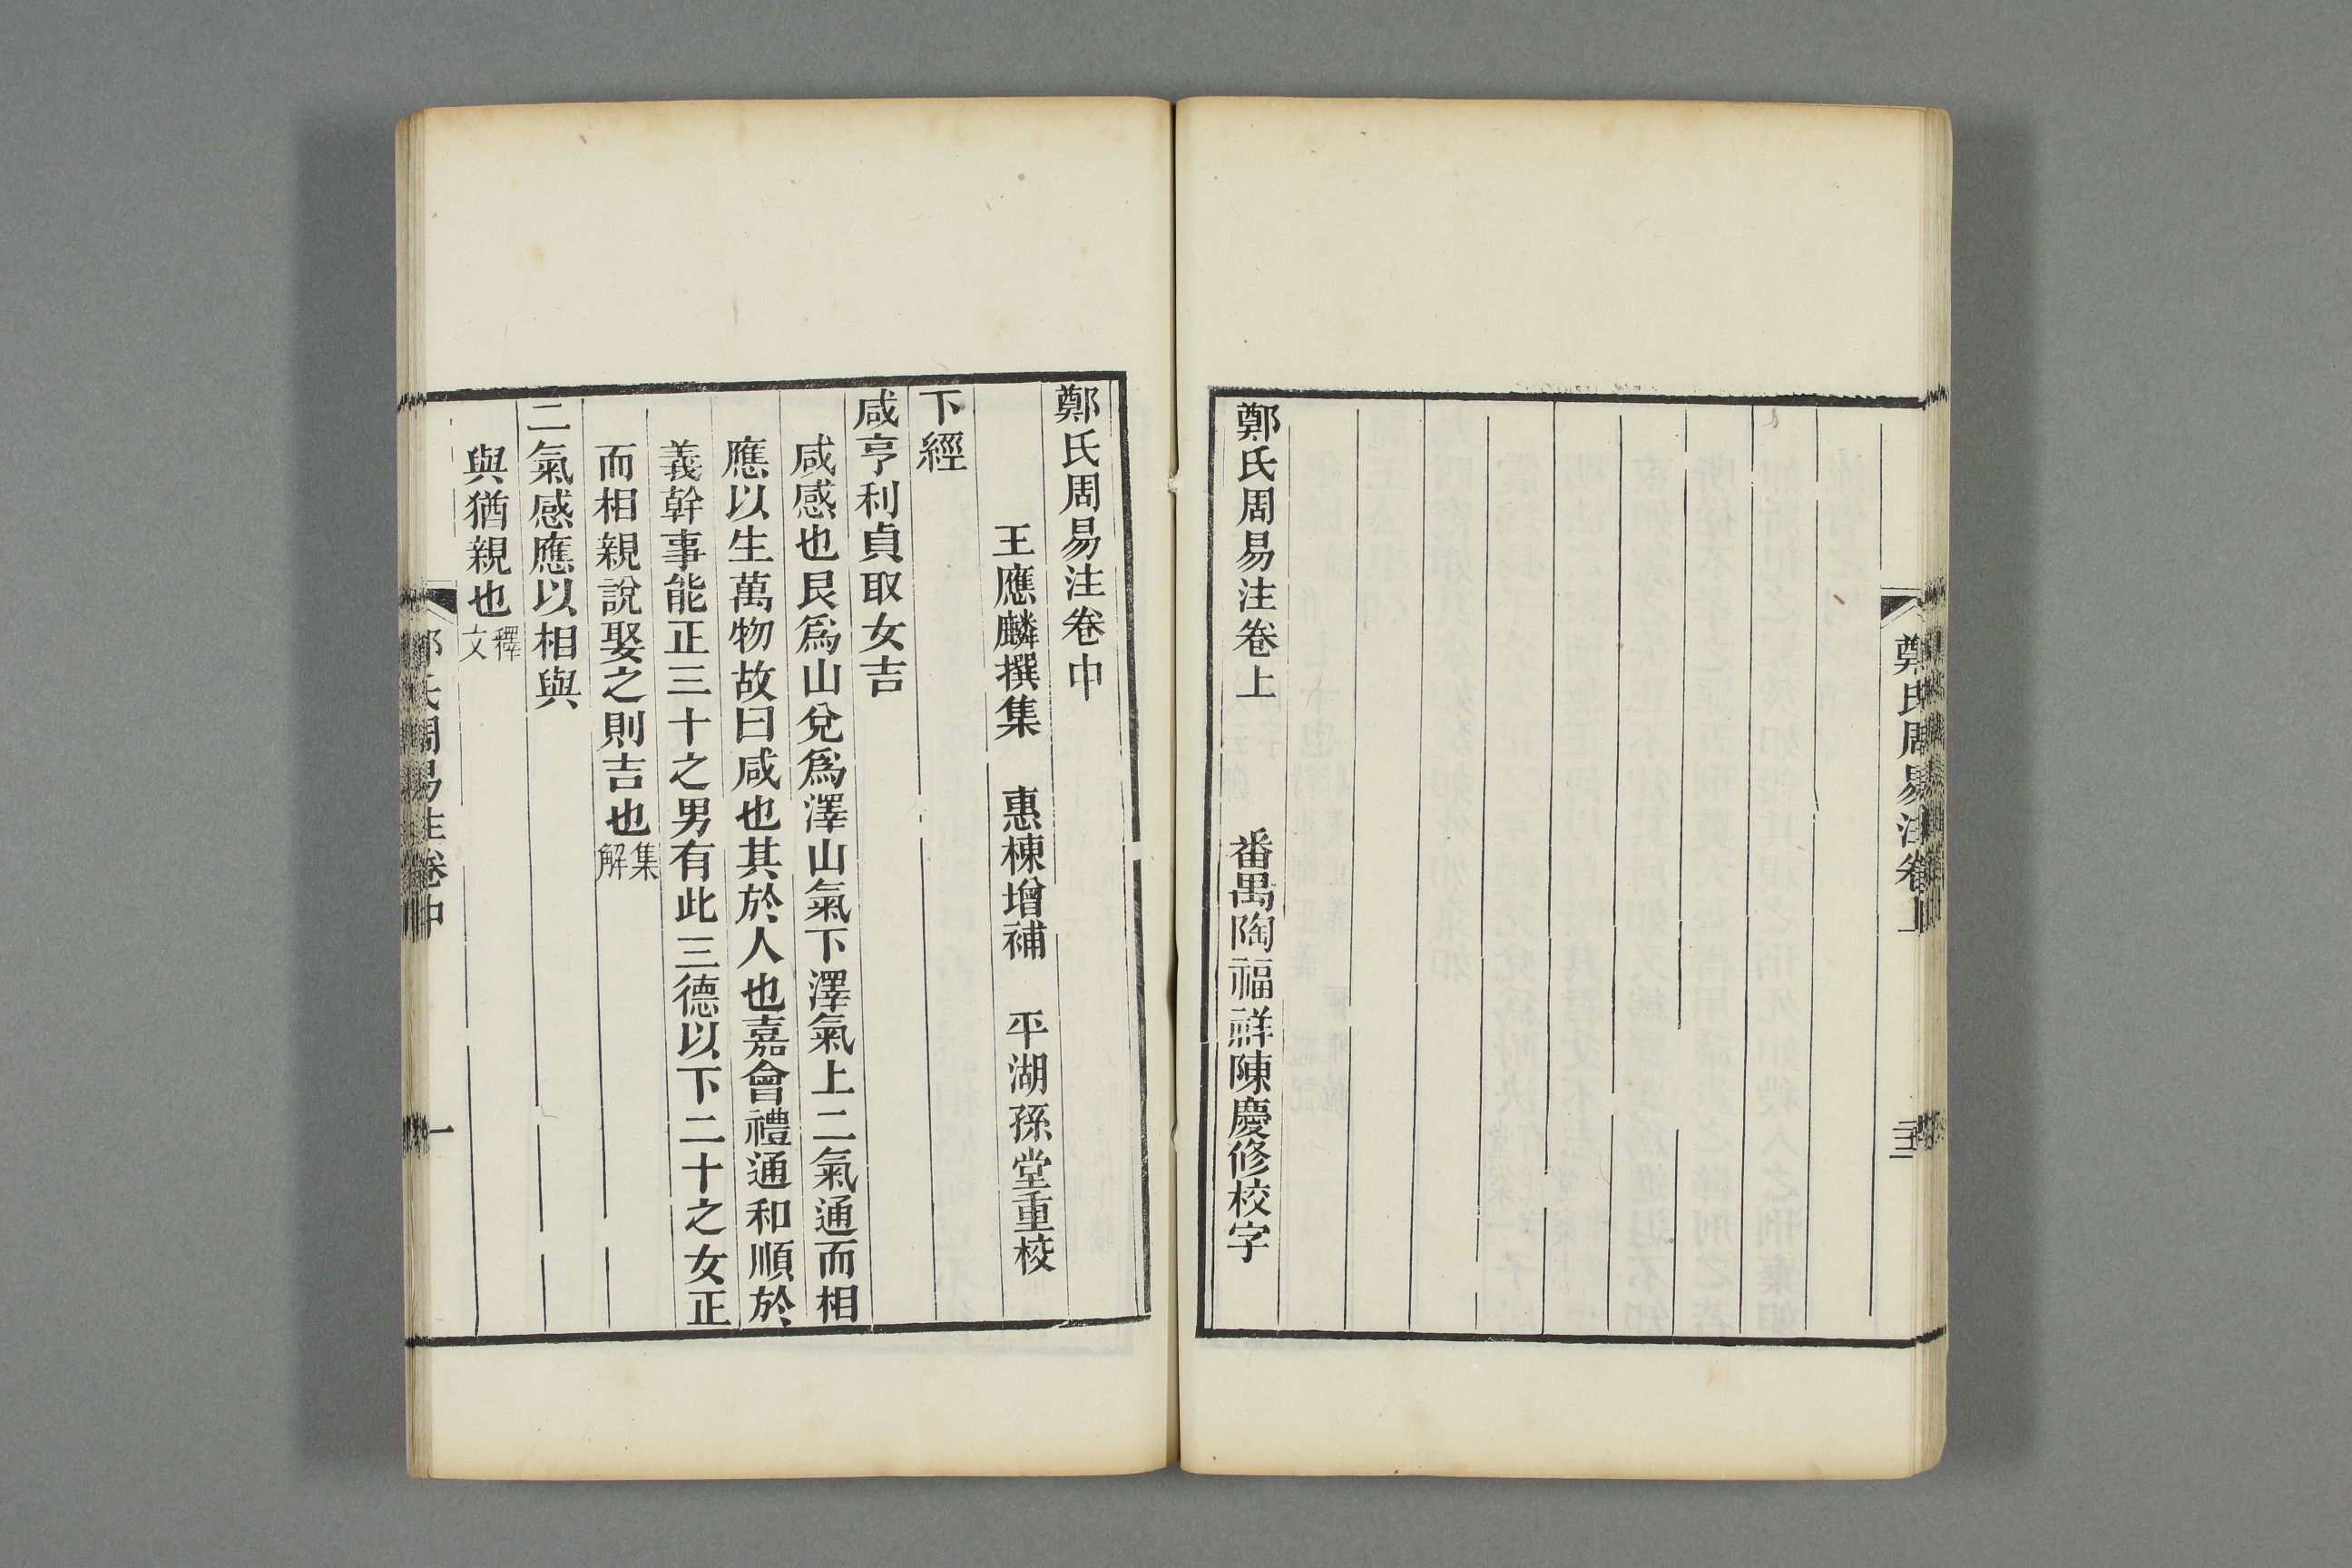 鄭氏周易注卷上
鄭氏周易注卷上 番禺陶福祥陳慶修校字
鄭氏周易注卷中
王應麟撰集 惠棟增補 平湖孫堂重校
下經
咸亨利貞取女吉
咸感也艮爲山兌爲澤山氣下澤氣上二氣通而相
應以生萬物故曰咸也其於人也嘉會禮通和順於
義幹事能正三十之男有此三德以下二十之女正
而相親說娶之則吉也集解
二氣感應以相與
與猶親也釋文
鄭氏周易注卷中
一